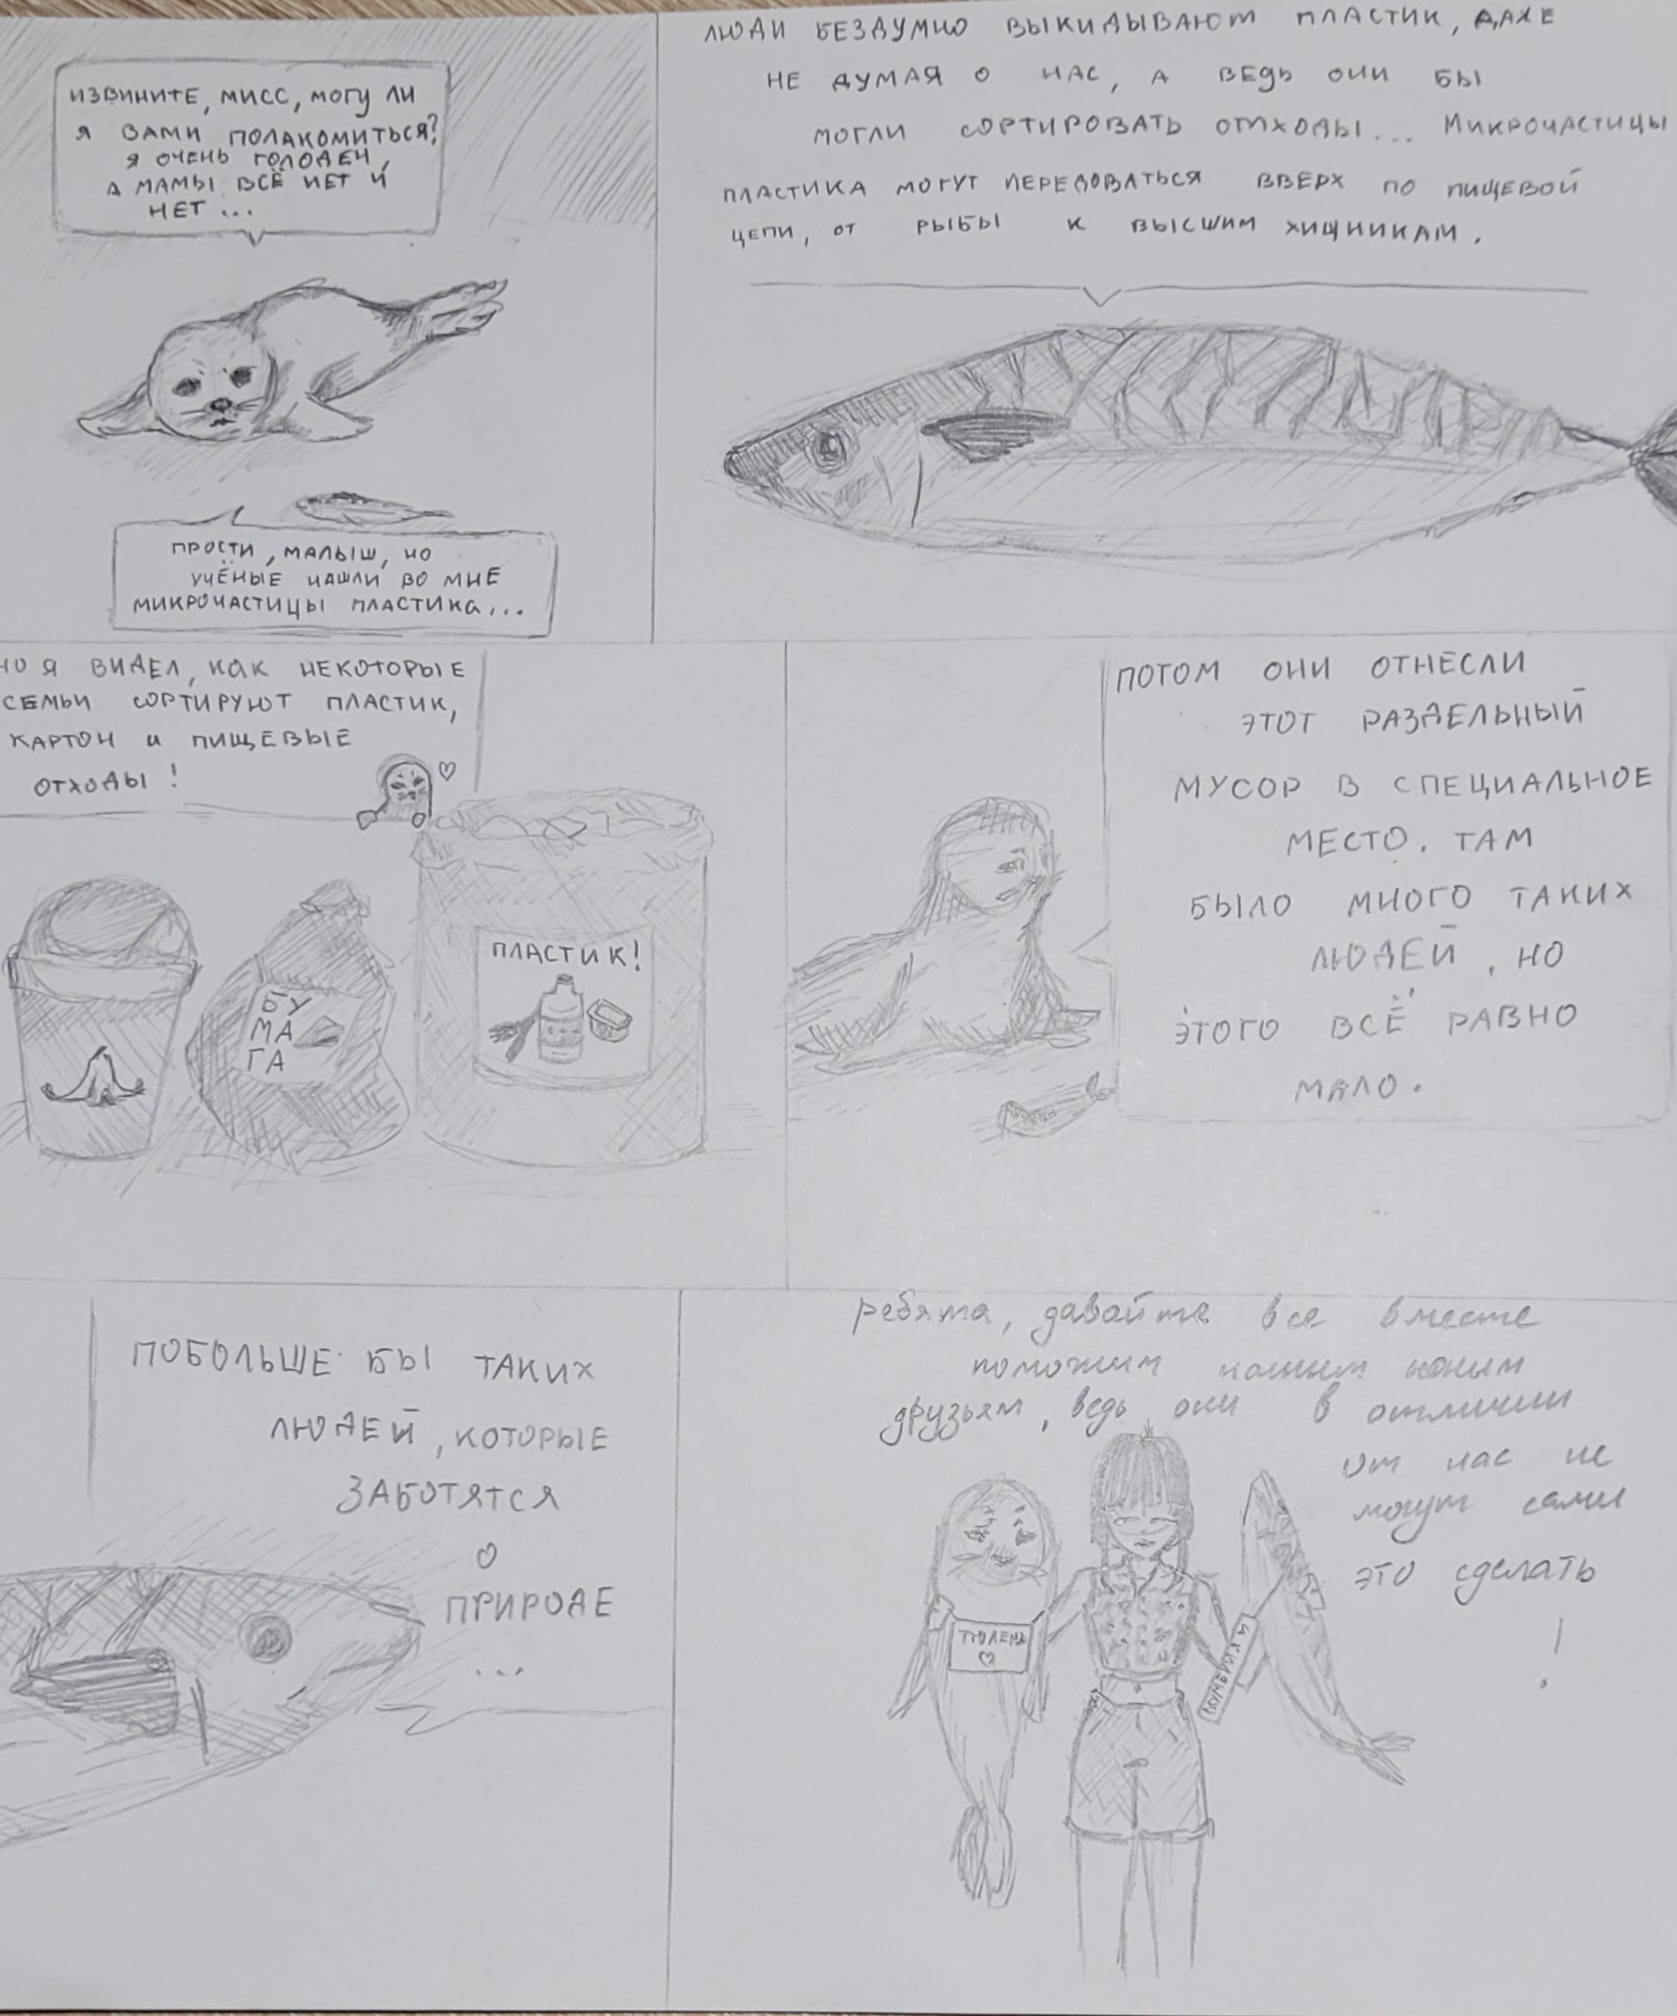 ИЗВИНИТЕ, МИСС, МОГУ ЛИ
Я ВАМИ ПОЛАКОМИТЬСЯ?
Я ОЧЕНЬ ГОЛОДЕН,
А МАМЫ ВСЁ НЕТ И
НЕТ...
ПРОСТИ, МАЛЫШ, НО
УЧЁНЫЕ НАШЛИ ВО МНЕ
МИКРОЧАСТИЦЫ ПЛАСТИКА...
ЛЮДИ БЕЗДУМНО ВЫКИДЫВАЮТ ПЛАСТИК, ДАЖЕ
НЕ ДУМАЯ О НАС, А ВЕДЬ ОНИ БЫ
МОГЛИ СОРТИРОВАТЬ ОТХОДЫ... МИКРОЧАСТИЦЫ
ПЛАСТИКА МОГУТ ПЕРЕДОВАТЬСЯ ВВЕРХ ПО ПИЩЕВОЙ
ЦЕПИ, ОТ РЫБЫ К ВЫСШИМ ХИЩНИКАМ.
НО Я ВИДЕЛ, КАК НЕКОТОРЫЕ
СЕМЬИ СОРТИРУЮТ ПЛАСТИК,
КАРТОН И ПИЩЕВЫЕ
ОТХОДЫ!
БУ
МА
ГА
ПЛАСТИК!
ПОТОМ ОНИ ОТНЕСЛИ
ЭТОТ РАЗДЕЛЬНЫЙ
МУСОР В СПЕЦИАЛЬНОЕ
МЕСТО. ТАМ
БЫЛО МНОГО ТАКИХ
ЛЮДЕЙ, НО
ЭТОГО ВСЁ РАВНО
МАЛО.
ПОБОЛЬШЕ БЫ ТАКИХ
ЛЮДЕЙ, КОТОРЫЕ
ЗАБОТЯТСЯ
О
ПРИРОДЕ
...
ребята, давайте все вместе
поможем нашим юным
друзьям, ведь они в отличии
от нас не
могут сами
это сделать
!
ТЮЛЕНЬ
СКУМБРИЯ